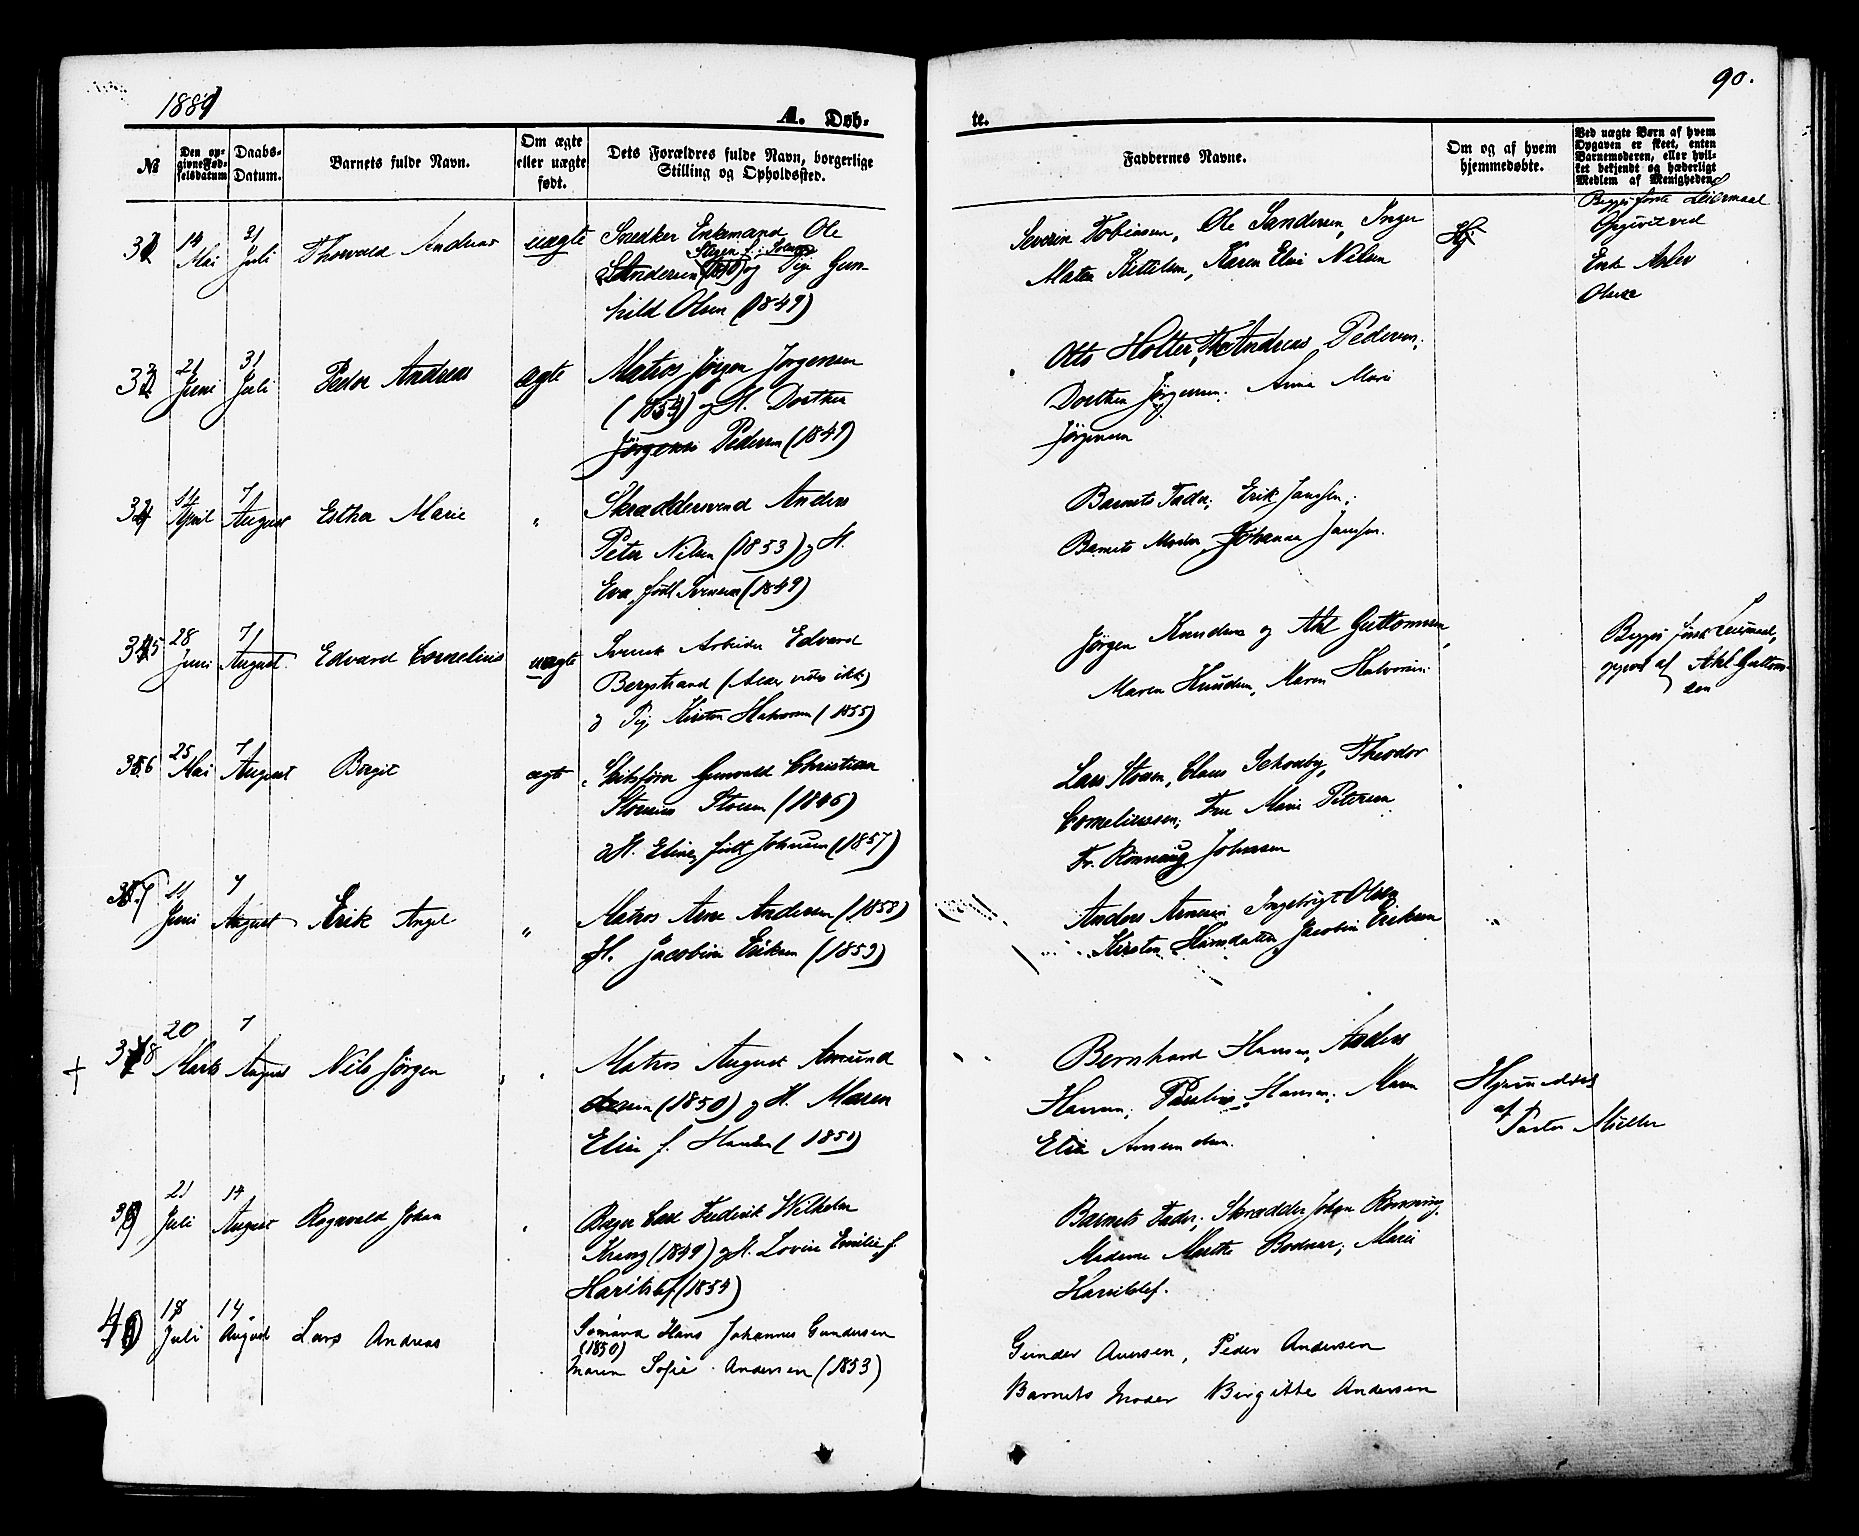 1881
90.
A. Døb-
te.
№
Den op-
givne Fød-
selsdatum
Daabs-
Datum.
Barnets fulde Navn.
Om ægte
eller uægte
født.
Dets Forældres fulde Navn, borgerlige
Stilling og Opholdssted.
Faddernes Navne.
Om og af hvem
hjemmedøbte.
Ved uægte Børn af hvem
Opgaven er skeet, enten
Barnemoderen, eller hvil-
ket bekjendt og hæderligt
Medlem af Menigheden.
14 Mai
31 Juli
Thorvald Andreas
uægte
Snedker Enkemand Ole
og Pige Gun-
hild Olsen (1849)
Severin Tobiasen, Ole Sandersen, Inger
Maten Kittelsen, Karen Elise Nilsen
Begges første Leiermaal
Opgivet ved
Enke Aslev
Olsen
21 Juni
31 Juli
Peder Andreas
ægte
Matros Jørgen Jørgensen
(1854) og H. Dorthea
Jørgensen Pedersen (1849)
Otto Holter, Andreas Pedersen,
Dorthea Jørgensen. Anne Marie
Jørgensen
34
14 April
7 August
Esther Marie
"
Skræddersvend Anders
Peter Nilsen (1853) og H.
Eva, født Svensen (1849)
Barnets Fader, Erik Jansen,
Barnets Moder, Johanna Jansen.
35
28 Juni
7 August
Edvard Cornelius
uægte
Svensk Arbeider Edvard
Bergstrand (Alder vides ikke)
og Pige Kirsten Halvorsen (1855)
Jørgen Knudsen og Aksel Guttormsen,
Maren Knudsen, Maren Halvorsen
Begges første Leiermaal,
opgivet af Aksel Guttorm-
sen
36
25 Mai
7 August
Birgit
ægte
Skibsfører Gunvald Christian
Stoesen (1846)
og H. Eline, født Johnsen (1857)
Lars Stoesen, Claus Schouby, Theodor
Corneliussen, Fru Marie Petersen
Fr. Rønnaug Johnsen
37
11 Juni
7 August
Erik Angel
"
Matros Arne Andersen (1858)
og H. Jacobine Eriksen (1859)
Anders Arnesen, Ingebrigt Olsen
Kirsten Hansdatter, Jacobine Eriksen
+
38
20 Marts
7 August
Nils Jørgen
Matros August Amund
sen (1850) og H. Maren
Elise f. Hansen (1851)
Bernhard Hansen, Anders
Hansen, Pauline Hansen, Maren
Elise Amundsen.
Hjemmedøbt
af
Pastor Müller
39
21 Juli
14 August
Ragnvald Johan
Bager Carl Frederik Wilhelm
Krang (1849) og H. Lovise Emilie f.
Haritslef (1854)
Barnets Fader, Skrædder Johan Rønning,
Madame Marthe Bodner, Marie
Haritslef.
40
18 Juli
14 August
Lars Andreas
Sømand Hans Johannes Gundersen
(1850)
Maren Sofie Andersen (1853)
Gunder Aversen, Peder Andersen
Barnets Moder Birgitte Andersen